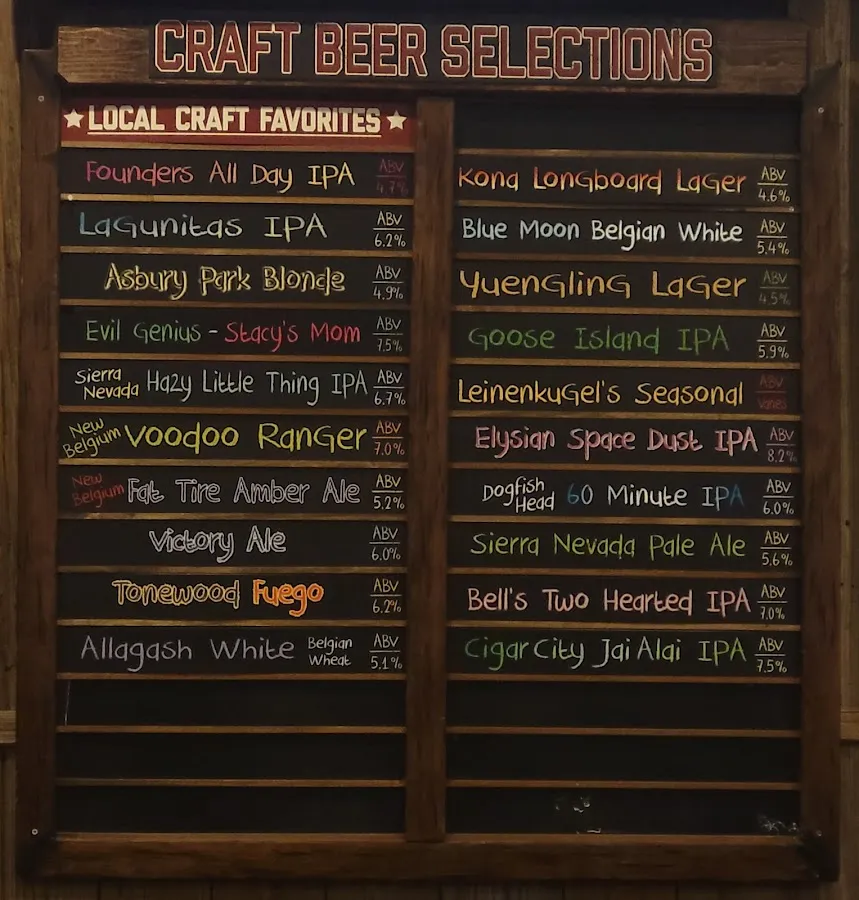 CRAFT BEER SELECTIONS
LOCAL CRAFT FAVORITES
Founders All Day IPA ABV 4.7%
Lagunitas IPA ABV 6.2%
Asbury Park Blonde ABV 4.9%
Evil Genius - Stacy's Mom ABV 7.5%
Sierra Nevada Hazy Little Thing IPA ABV 6.7%
New Belgium Voodoo Ranger ABV 7.0%
New Belgium Fat Tire Amber Ale ABV 5.2%
Victory Ale ABV 6.0%
Tonewood Fuego ABV 6.2%
Allagash White Belgian Wheat ABV 5.1%
Kona Longboard Lager ABV 4.6%
Blue Moon Belgian White ABV 5.4%
Yuengling Lager ABV 4.5%
Goose Island IPA ABV 5.9%
Leinenkugel's Seasonal ABV Varies
Elysian Space Dust IPA ABV 8.2%
Dogfish Head 60 Minute IPA ABV 6.0%
Sierra Nevada Pale Ale ABV 5.6%
Bell's Two Hearted IPA ABV 7.0%
Cigar City Jai Alai IPA ABV 7.5%